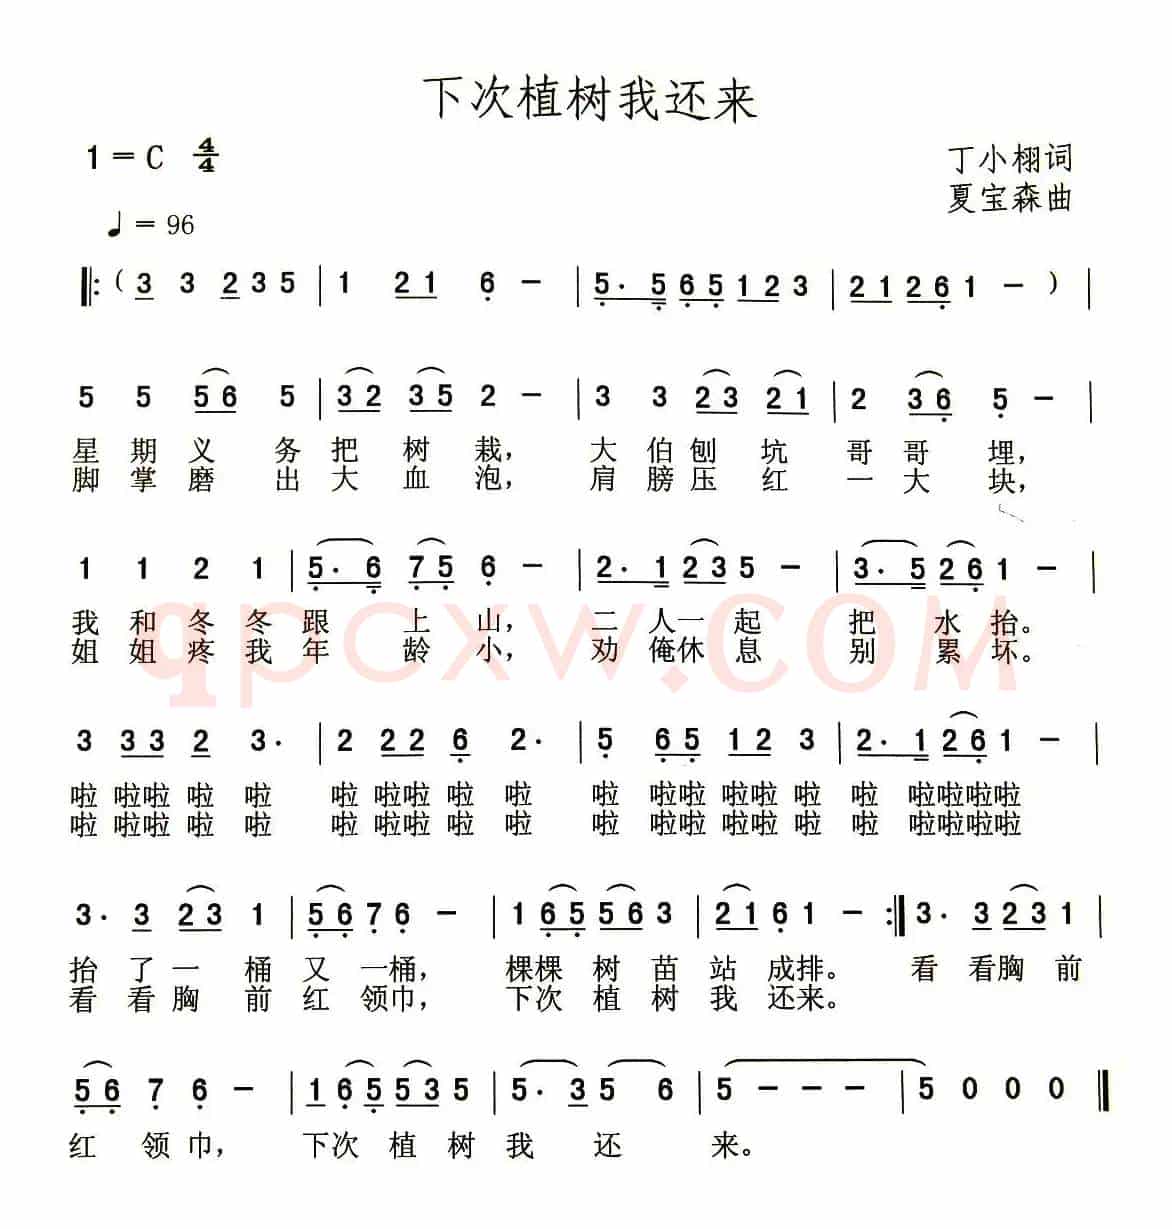 下次植树我还来
1 = C 4/4
丁小栩词
夏宝森曲
♩ = 96
‖: ( 3 3 2 3 5 | 1 2 1 6 – | 5· 5 6 5 1 2 3 | 2 1 2 6 1 – ) |
5 5 5 6 5 | 3 2 3 5 2 – | 3 3 2 3 2 1 | 2 3 6 5 – |
星期义务把树栽,大伯刨坑哥哥埋,
脚掌磨出大血泡,肩膀压红一大块,
1 1 2 1 | 5· 6 7 5 6 – | 2· 1 2 3 5 – | 3· 5 2 6 1 – |
我和冬冬跟上山,二人一起把水抬。
姐姐疼我年龄小,劝俺休息别累坏。
qpcxw.COM
3 3 3 2 3· | 2 2 2 6 2· | 5 6 5 1 2 3 | 2· 1 2 6 1 – |
啦 啦啦 啦 啦 啦 啦啦 啦 啦 啦 啦啦 啦啦 啦 啦 啦啦啦啦
啦 啦啦 啦 啦 啦 啦啦 啦 啦 啦 啦啦 啦啦 啦 啦 啦啦啦啦
3· 3 2 3 1 | 5 6 7 6 – | 1 6 5 5 6 3 | 2 1 6 1 – :‖ 3· 3 2 3 1 |
抬了一桶又一桶,棵棵树苗站成排。看看胸前
看看胸前红领巾,下次植树我还来。
5 6 7 6 – | 1 6 5 5 3 5 | 5· 3 5 6 | 5 – – – | 5 0 0 0 ‖
红领巾,下次植树我还来。